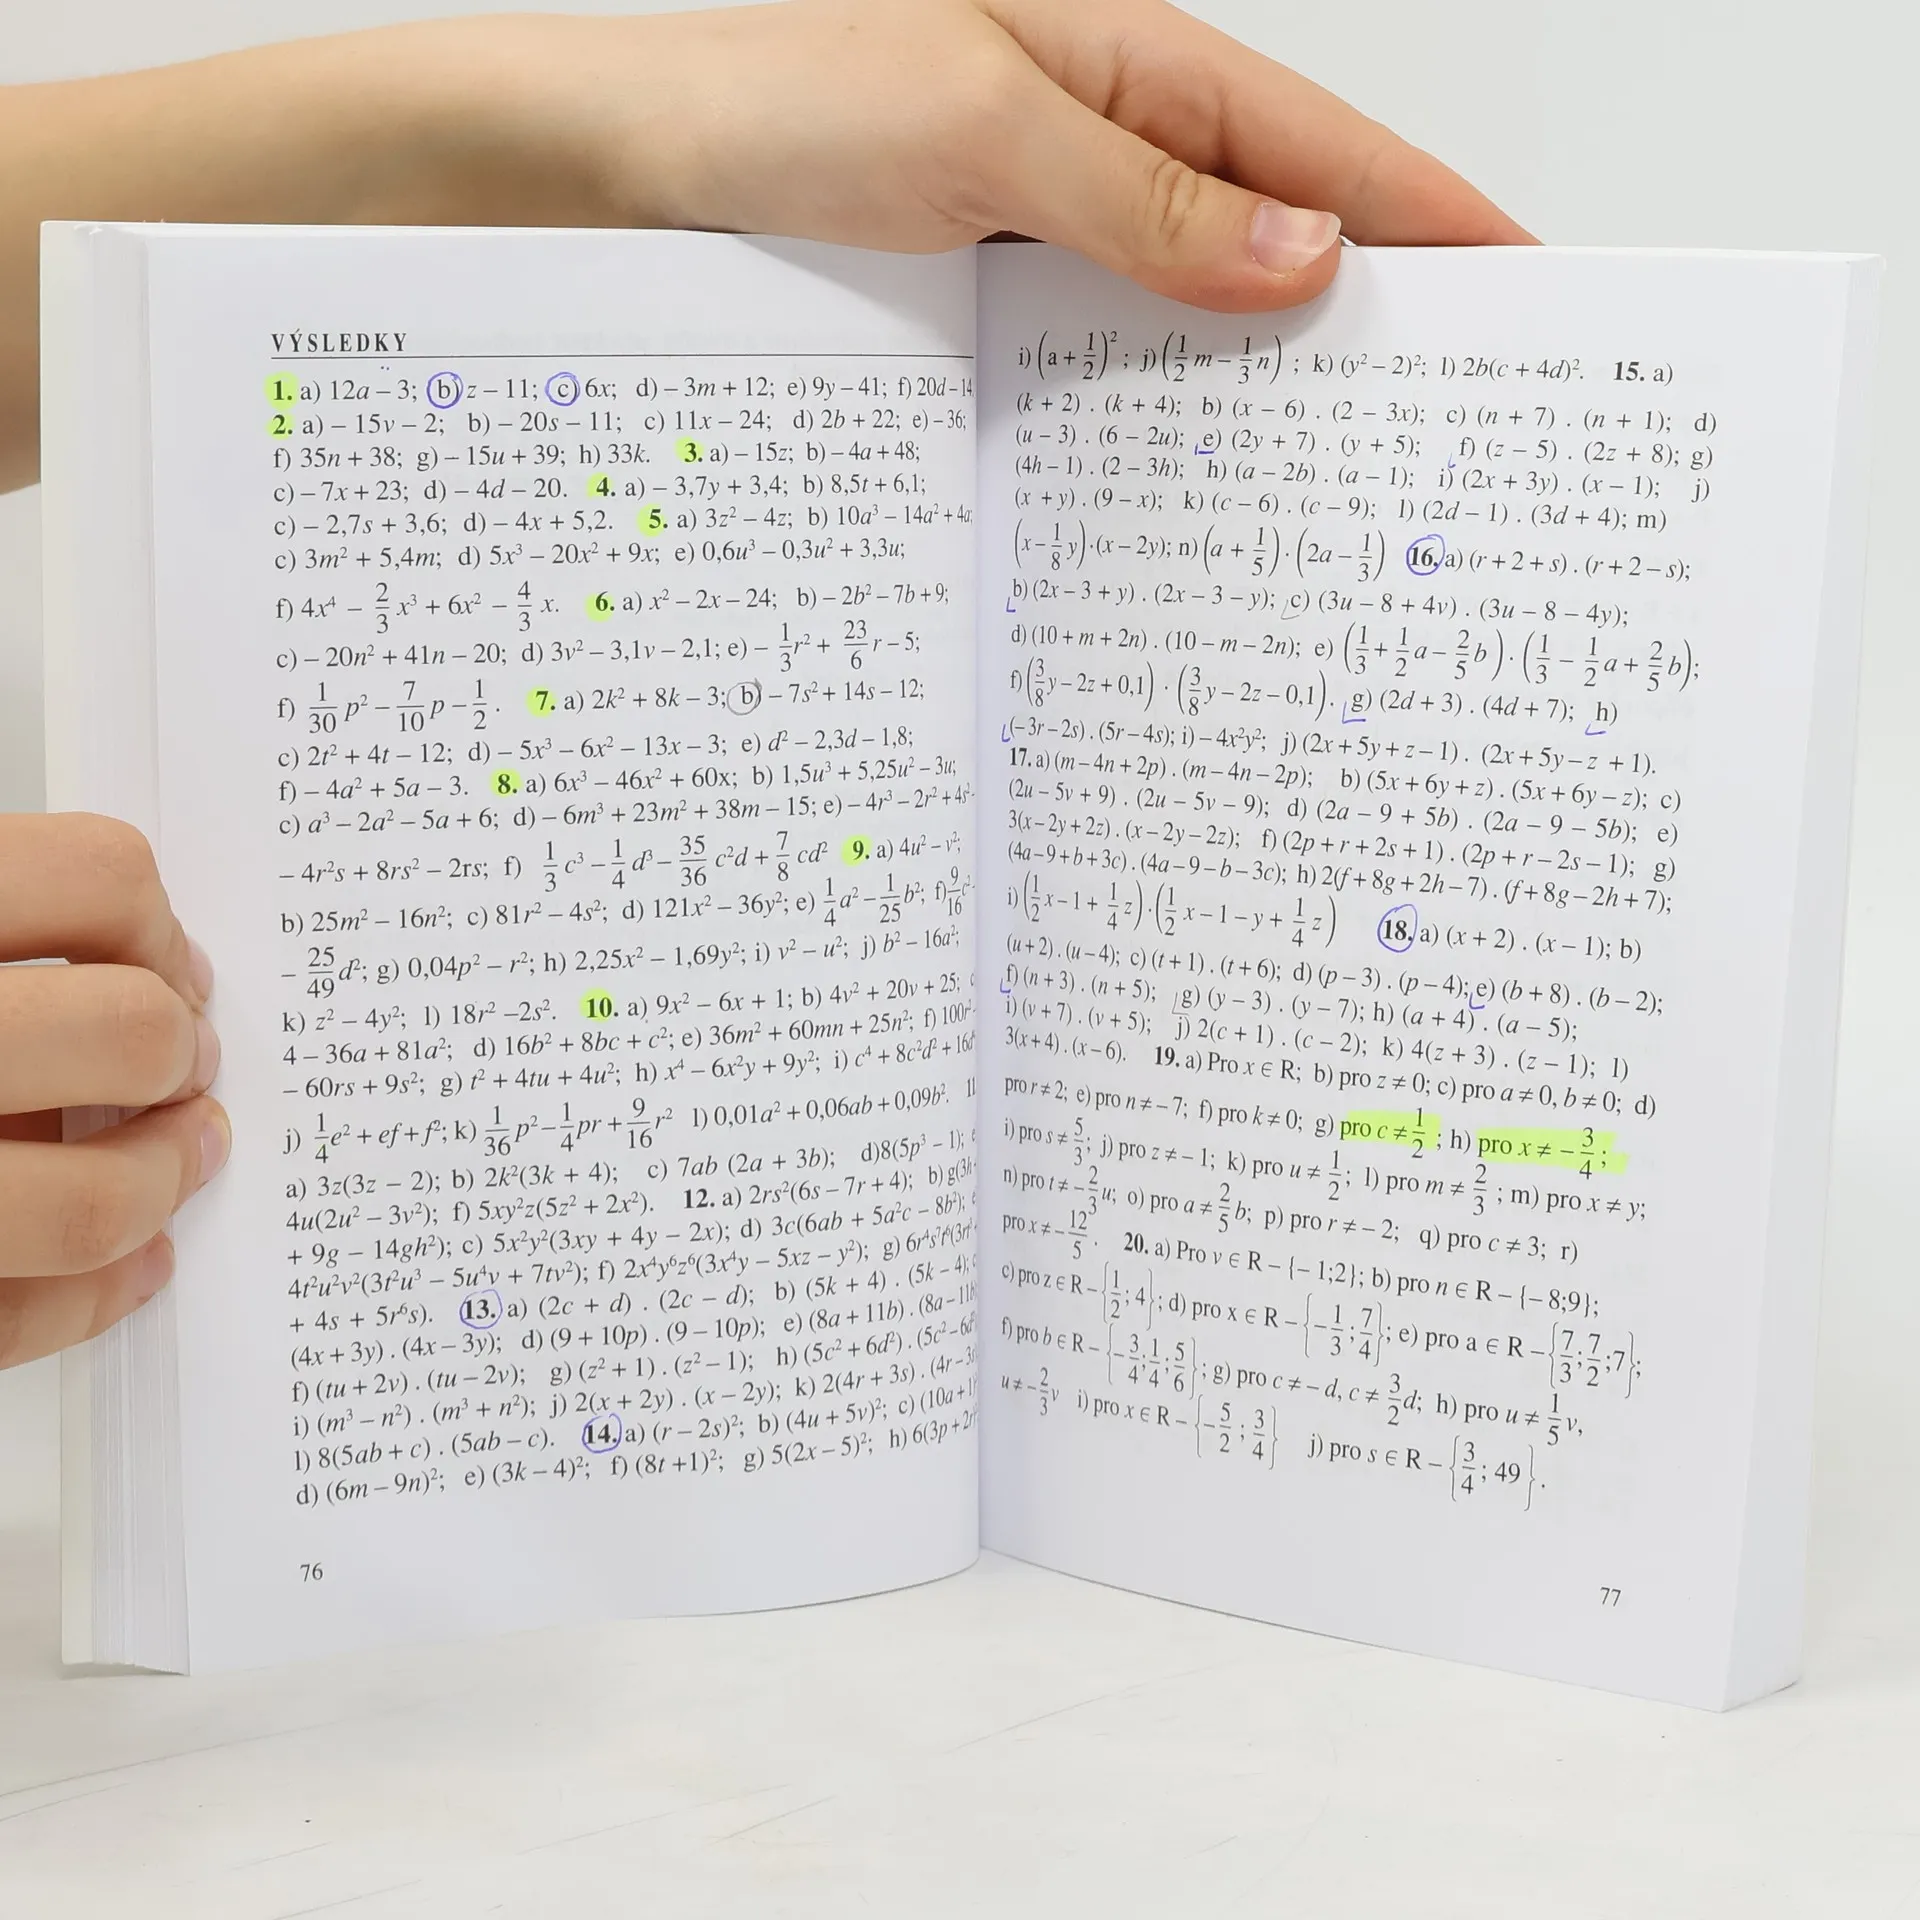 VÝSLEDKY
1. a) 12a – 3; b) z – 11; c) 6x; d) – 3m + 12; e) 9y – 41; f) 20d – 14
2. a) – 15v – 2; b) – 20s – 11; c) 11x – 24; d) 2b + 22; e) – 36;
f) 35n + 38; g) – 15u + 39; h) 33k. 3. a) – 15z; b) – 4a + 48;
c) – 7x + 23; d) – 4d – 20. 4. a) – 3,7y + 3,4; b) 8,5t + 6,1;
c) – 2,7s + 3,6; d) – 4x + 5,2. 5. a) 3z² – 4z; b) 10a³ – 14a² + 4a;
c) 3m² + 5,4m; d) 5x³ – 20x² + 9x; e) 0,6u³ – 0,3u² + 3,3u;
f) 4x⁴ – 2/3 x³ + 6x² – 4/3 x. 6. a) x² – 2x – 24; b) – 2b² – 7b + 9;
c) – 20n² + 41n – 20; d) 3v² – 3,1v – 2,1; e) – 1/3 r² + 23/6 r – 5;
f) 1/30 p² – 7/10 p – 1/2 . 7. a) 2k² + 8k – 3; b) – 7s² + 14s – 12;
c) 2t² + 4t – 12; d) – 5x³ – 6x² – 13x – 3; e) d² – 2,3d – 1,8;
f) – 4a² + 5a – 3. 8. a) 6x³ – 46x² + 60x; b) 1,5u³ + 5,25u² – 3u;
c) a³ – 2a² – 5a + 6; d) – 6m³ + 23m² + 38m – 15; e) – 4r³ – 2r² + 4s² -
– 4r²s + 8rs² – 2rs; f) 1/3 c³ – 1/4 d³ – 35/36 c²d + 7/8 cd² 9. a) 4u² – v²;
b) 25m² – 16n²; c) 81r² – 4s²; d) 121x² – 36y²; e) 1/4 a² – 1/25 b²; f) 9/16 c² -
– 25/49 d²; g) 0,04p² – r²; h) 2,25x² – 1,69y²; i) v² – u²; j) b² – 16a²;
k) z² – 4y²; l) 18r² –2s². 10. a) 9x² – 6x + 1; b) 4v² + 20v + 25;
4 – 36a + 81a²; d) 16b² + 8bc + c²; e) 36m² + 60mn + 25n²; f) 100r²
– 60rs + 9s²; g) t² + 4tu + 4u²; h) x⁴ – 6x²y + 9y²; i) c⁴ + 8c²d² + 16d⁴
j) 1/4 e² + ef + f²; k) 1/36 p² – 1/4 pr + 9/16 r² l) 0,01a² + 0,06ab + 0,09b². 11
a) 3z(3z – 2); b) 2k²(3k + 4); c) 7ab (2a + 3b); d)8(5p³ – 1);
4u(2u² – 3v²); f) 5xy²z(5z² + 2x²). 12. a) 2rs²(6s – 7r + 4); b) g(3h
+ 9g – 14gh²); c) 5x²y²(3xy + 4y – 2x); d) 3c(6ab + 5a²c – 8b²);
4t²u²v²(3t²u³ – 5u⁴v + 7tv²); f) 2x⁴y⁶z⁶(3x⁴y – 5xz – y²); g) 6r⁴s⁷t⁶(3rt
+ 4s + 5r⁶s). 13. a) (2c + d) . (2c – d); b) (5k + 4) . (5k – 4);
(4x + 3y) . (4x – 3y); d) (9 + 10p) . (9 – 10p); e) (8a + 11b) . (8a – 11b
f) (tu + 2v) . (tu – 2v); g) (z² + 1) . (z² – 1); h) (5c² + 6d²) . (5c² – 6d²
i) (m³ – n²) . (m³ + n²); j) 2(x + 2y) . (x – 2y); k) 2(4r + 3s) . (4r – 3s
l) 8(5ab + c) . (5ab – c). 14. a) (r – 2s)²; b) (4u + 5v)²; c) (10a + 1)
d) (6m – 9n)²; e) (3k – 4)²; f) (8t +1)²; g) 5(2x – 5)²; h) 6(3p + 2r
76
i) (a + 1/2)² ; j) (1/2 m – 1/3 n) ; k) (y² – 2)²; l) 2b(c + 4d)². 15. a)
(k + 2) . (k + 4); b) (x – 6) . (2 – 3x); c) (n + 7) . (n + 1); d)
(u – 3) . (6 – 2u); e) (2y + 7) . (y + 5); f) (z – 5) . (2z + 8); g)
(4h – 1) . (2 – 3h); h) (a – 2b) . (a – 1); i) (2x + 3y) . (x – 1); j)
(x + y) . (9 – x); k) (c – 6) . (c – 9); l) (2d – 1) . (3d + 4); m)
(x – 1/8 y) . (x – 2y); n) (a + 1/5) . (2a – 1/3) 16. a) (r + 2 + s) . (r + 2 – s);
b) (2x – 3 + y) . (2x – 3 – y); c) (3u – 8 + 4v) . (3u – 8 – 4y);
d) (10 + m + 2n) . (10 – m – 2n); e) (1/3 + 1/2 a – 2/5 b) . (1/3 – 1/2 a + 2/5 b);
f) (3/8 y – 2z + 0,1) . (3/8 y – 2z – 0,1). g) (2d + 3) . (4d + 7); h)
(– 3r – 2s) . (5r – 4s); i) – 4x²y²; j) (2x + 5y + z – 1) . (2x + 5y – z + 1).
17. a) (m – 4n + 2p) . (m – 4n – 2p); b) (5x + 6y + z) . (5x + 6y – z); c)
(2u – 5v + 9) . (2u – 5v – 9); d) (2a – 9 + 5b) . (2a – 9 – 5b); e)
3(x – 2y + 2z) . (x – 2y – 2z); f) (2p + r + 2s + 1) . (2p + r – 2s – 1); g)
(4a – 9 + b + 3c) . (4a – 9 – b – 3c); h) 2(f + 8g + 2h – 7) . (f + 8g – 2h + 7);
i) (1/2 x – 1 + 1/4 z) . (1/2 x – 1 – y + 1/4 z) 18. a) (x + 2) . (x – 1); b)
(u + 2) . (u – 4); c) (t + 1) . (t + 6); d) (p – 3) . (p – 4); e) (b + 8) . (b – 2);
f) (n + 3) . (n + 5); g) (y – 3) . (y – 7); h) (a + 4) . (a – 5);
i) (v + 7) . (v + 5); j) 2(c + 1) . (c – 2); k) 4(z + 3) . (z – 1); l)
3(x + 4) . (x – 6). 19. a) Pro x ∈ R; b) pro z ≠ 0; c) pro a ≠ 0, b ≠ 0; d)
pro r ≠ 2; e) pro n ≠ – 7; f) pro k ≠ 0; g) pro c ≠ 1/2 ; h) pro x ≠ – 3/4 ;
i) pro s ≠ 5/3; j) pro z ≠ – 1; k) pro u ≠ 1/2; l) pro m ≠ 2/3 ; m) pro x ≠ y;
n) pro t ≠ – 2/3 u; o) pro a ≠ 2/5 b; p) pro r ≠ – 2; q) pro c ≠ 3; r)
pro x ≠ – 12/5 . 20. a) Pro v ∈ R – {– 1;2}; b) pro n ∈ R – {– 8;9};
c) pro z ∈ R – {1/2; 4}; d) pro x ∈ R – {– 1/3; 7/4}; e) pro a ∈ R – {7/3; 7/2; 7};
f) pro b ∈ R – {– 3/4; 1/4; 5/6}; g) pro c ≠ – d, c ≠ 3/2 d; h) pro u ≠ 1/5 v,
u ≠ – 2/3 v i) pro x ∈ R – {– 5/2 ; 3/4} j) pro s ∈ R – {3/4; 49} .
77